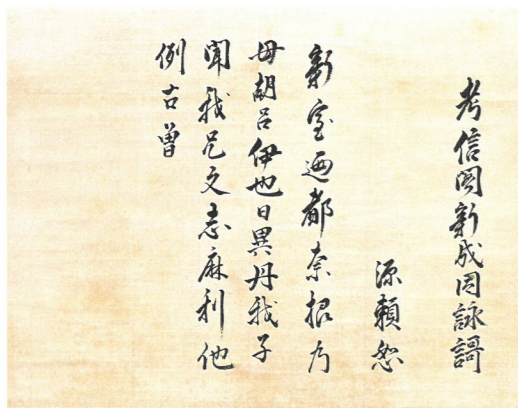 考信閣新成因詠謌
源頼恕
新室迺都奈根乃
母胡呂伊也日異丹我子
聞我文志麻利他
例古曽